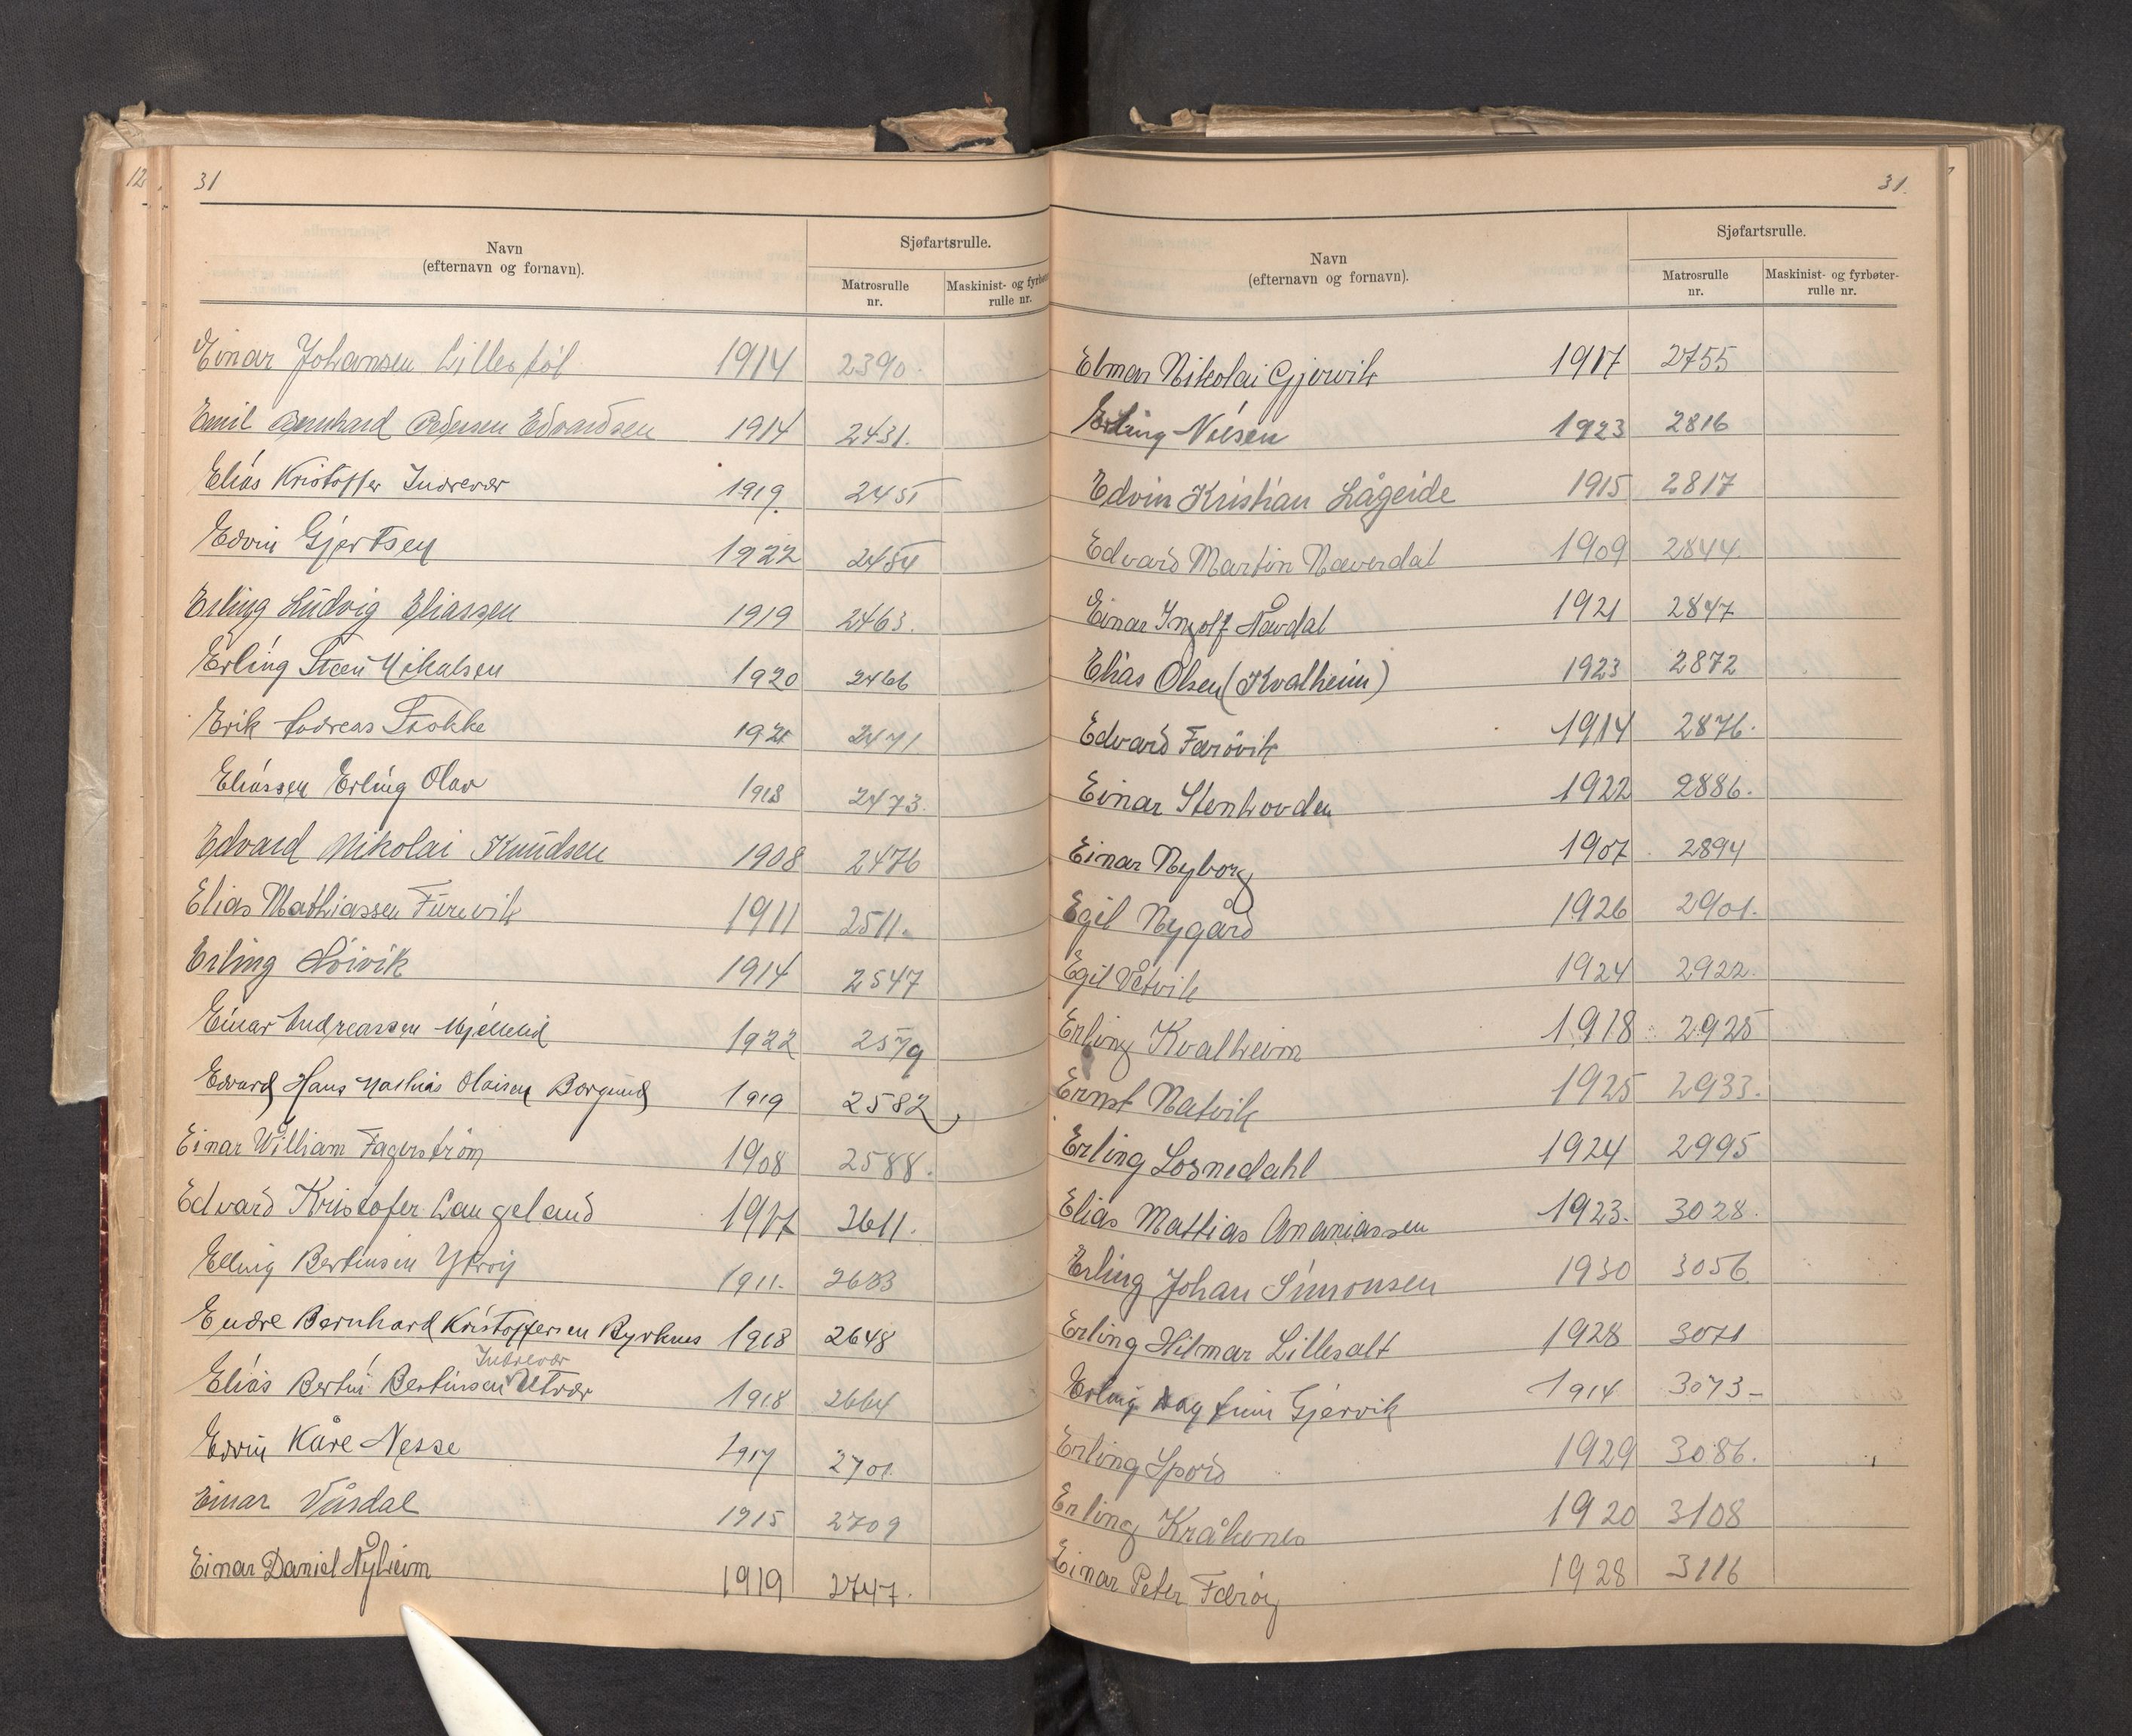 31
Navn
(efternavn og fornavn).
Sjøfartsrulle.
Matrosrulle
nr.
Maskinist- og fyrbøter-
rulle nr.
Einar Johansen Lillestøl 1914 2390.
Emil Bernhard Edvardsen 1914 2431.
Elias Kristoffer Indrevær 1919 2451
Edvin Gjertsen 1922 2454
Erling Ludvig Eliassen 1919 2463.
Erling Steen Mikalsen 1920 2466
Erik Andreas Stokke 1921 2471
Eliassen Erling Olav 1918 2473.
Edvard Nikolai Knudsen 1908 2476
Elias Mathiassen Furevik 1911 2511.
Erling Høivik 1914 2547
Einar Andreassen Mjellelid 1922 2579
Edvard Hans Mathias Olaisen Borgund 1919 2582
Einar William Fagerström 1908 2588.
Edvard Kristofer Langeland 1917 2611.
Elling Bertinsen Ytrøy 1911. 2633
Endre Bernhard Kristoffersen Byrknes 1918 2648
Indrevær
Elias Bertin Bertinsen Utvær 1918 2664
Edvin Kåre Nesse 1917 2701.
Einar Vårdal 1915 2709
Einar Daniel Nyheim 1919 2747.
31.
Navn
(efternavn og fornavn).
Sjøfartsrulle.
Matrosrulle
nr.
Maskinist- og fyrbøter-
rulle nr.
Elmar Nikolai Gjervik 1917 2755
Erling Nilsen 1923 2816
Edvin Kristian Lågeide 1915 2817
Edvard Martin Næverdal 1909 2844.
Einar Ingolf Nåvdal 1921 2847
Elias Olsen (Kvalheim) 1923 2872
Edvard Færøvik 1914 2876.
Einar Stenhovden 1922 2886.
Einar Nyborg 1907 2894
Egil Nygård 1926 2901.
Egil Vetvik 1924 2922.
Erling Kvalheim 1918 2925
Ernst Natvik 1925 2933.
Erling Losnedahl 1924 2995
Elias Mattias Ananiassen 1923. 3028.
Erling Johan Simonsen 1930 3056
Erling Hilmar Lillesalt 1928 3071
Erling Dagfinn Gjervik 1914 3073-
Erling Spord 1929 3086.
Erling Kråkenes 1920 3108
Einar Peter Færøy 1928 3116